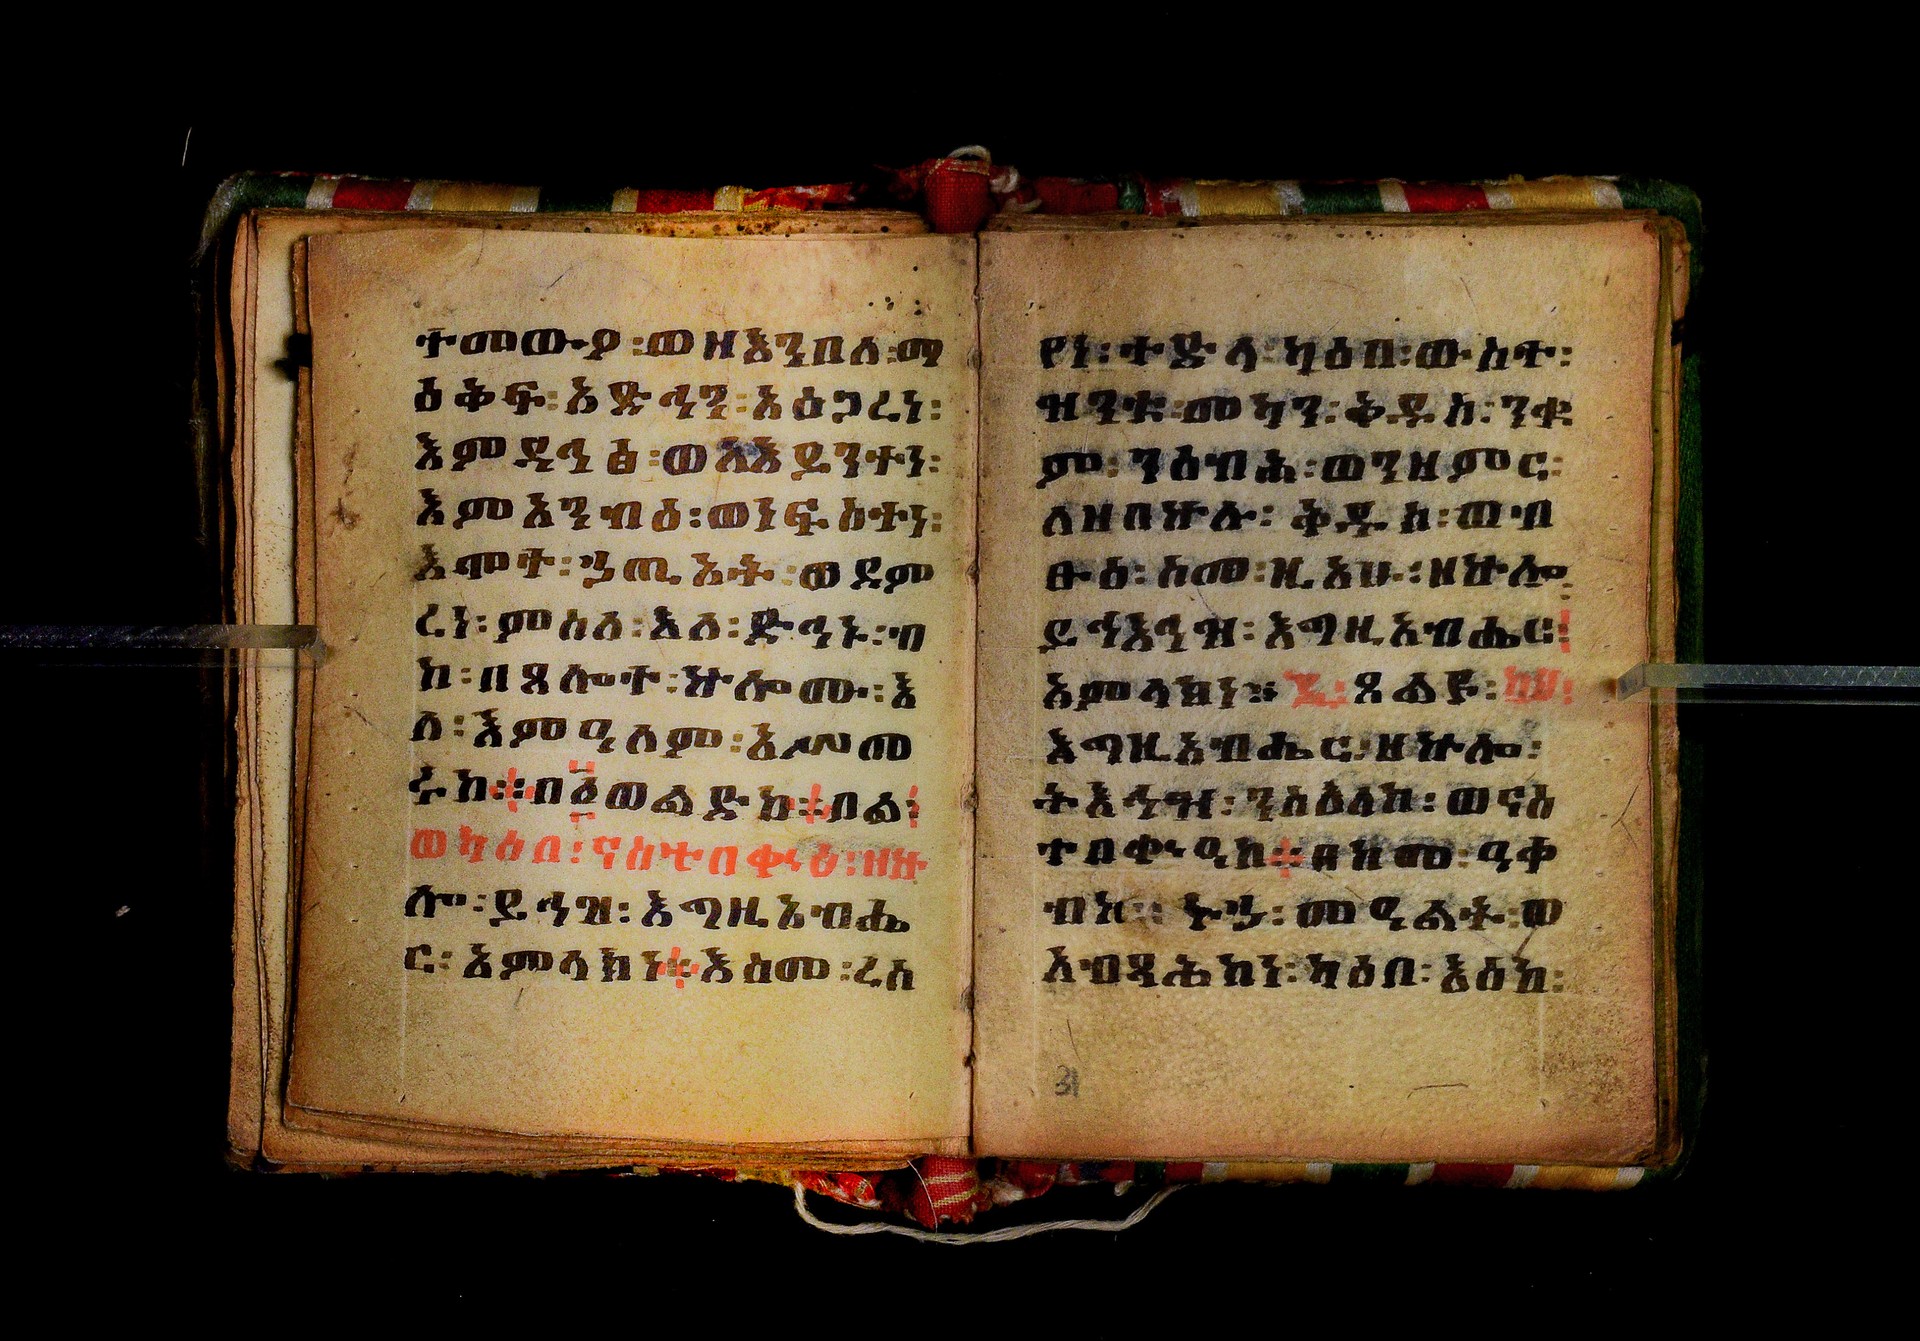 ተመውያ፡ወዘእንበለ፡ማ
ዕቅፍ፡አድኅን፡አዕጋረነ፡
እምዳኂፅ፡ወለእይንተነ፡
እምአንብዕ፡ወነፍስተነ፡
እሞተ፡ኃጢአት፡ወደም
ረነ፡ምስለ፡እለ፡ድኅኑ፡ብ
ከ፡በጸሎተ፡ኵሎሙ፡እ
ለ፡እምዓለም፡አሥመ
ሩከ፡በ፩ወልድከ፡በል፡
ወካዕበ፡ናስተበቍዕ፡ዘኵ
ሎ፡ይኅዝ፡እግዚአብሔ
ር፡አምላክነ፡እስመ፡ረሰ
የነ፡ተድላ፡ካዕበ፡ውስተ፡
ዝንቱ፡መካን፡ቅዱስ፡ንቁ
ም፡ንሰብሕ፡ወንዘምር፡
ለዘበኵሉ፡ቅዱስ፡ወብ
ፁዕ፡ስመ፡ዚአሁ፡ዘኵሎ፡
ይኅእኂዝ፡እግዚአብሔር፡
አምላክነ። ጸልዩ፡
እግዚአብሔር፡ዘኵሎ፡
ትእኅዝ፡ንስእለከ፡ወናስ
ተበቍዓከ፡ዘከመ፡ዓቀ
ብከ፡ኑኃ፡መዓልት፡ወ
አብጻሕከነ፡ካዕበ፡እስከ፡
31